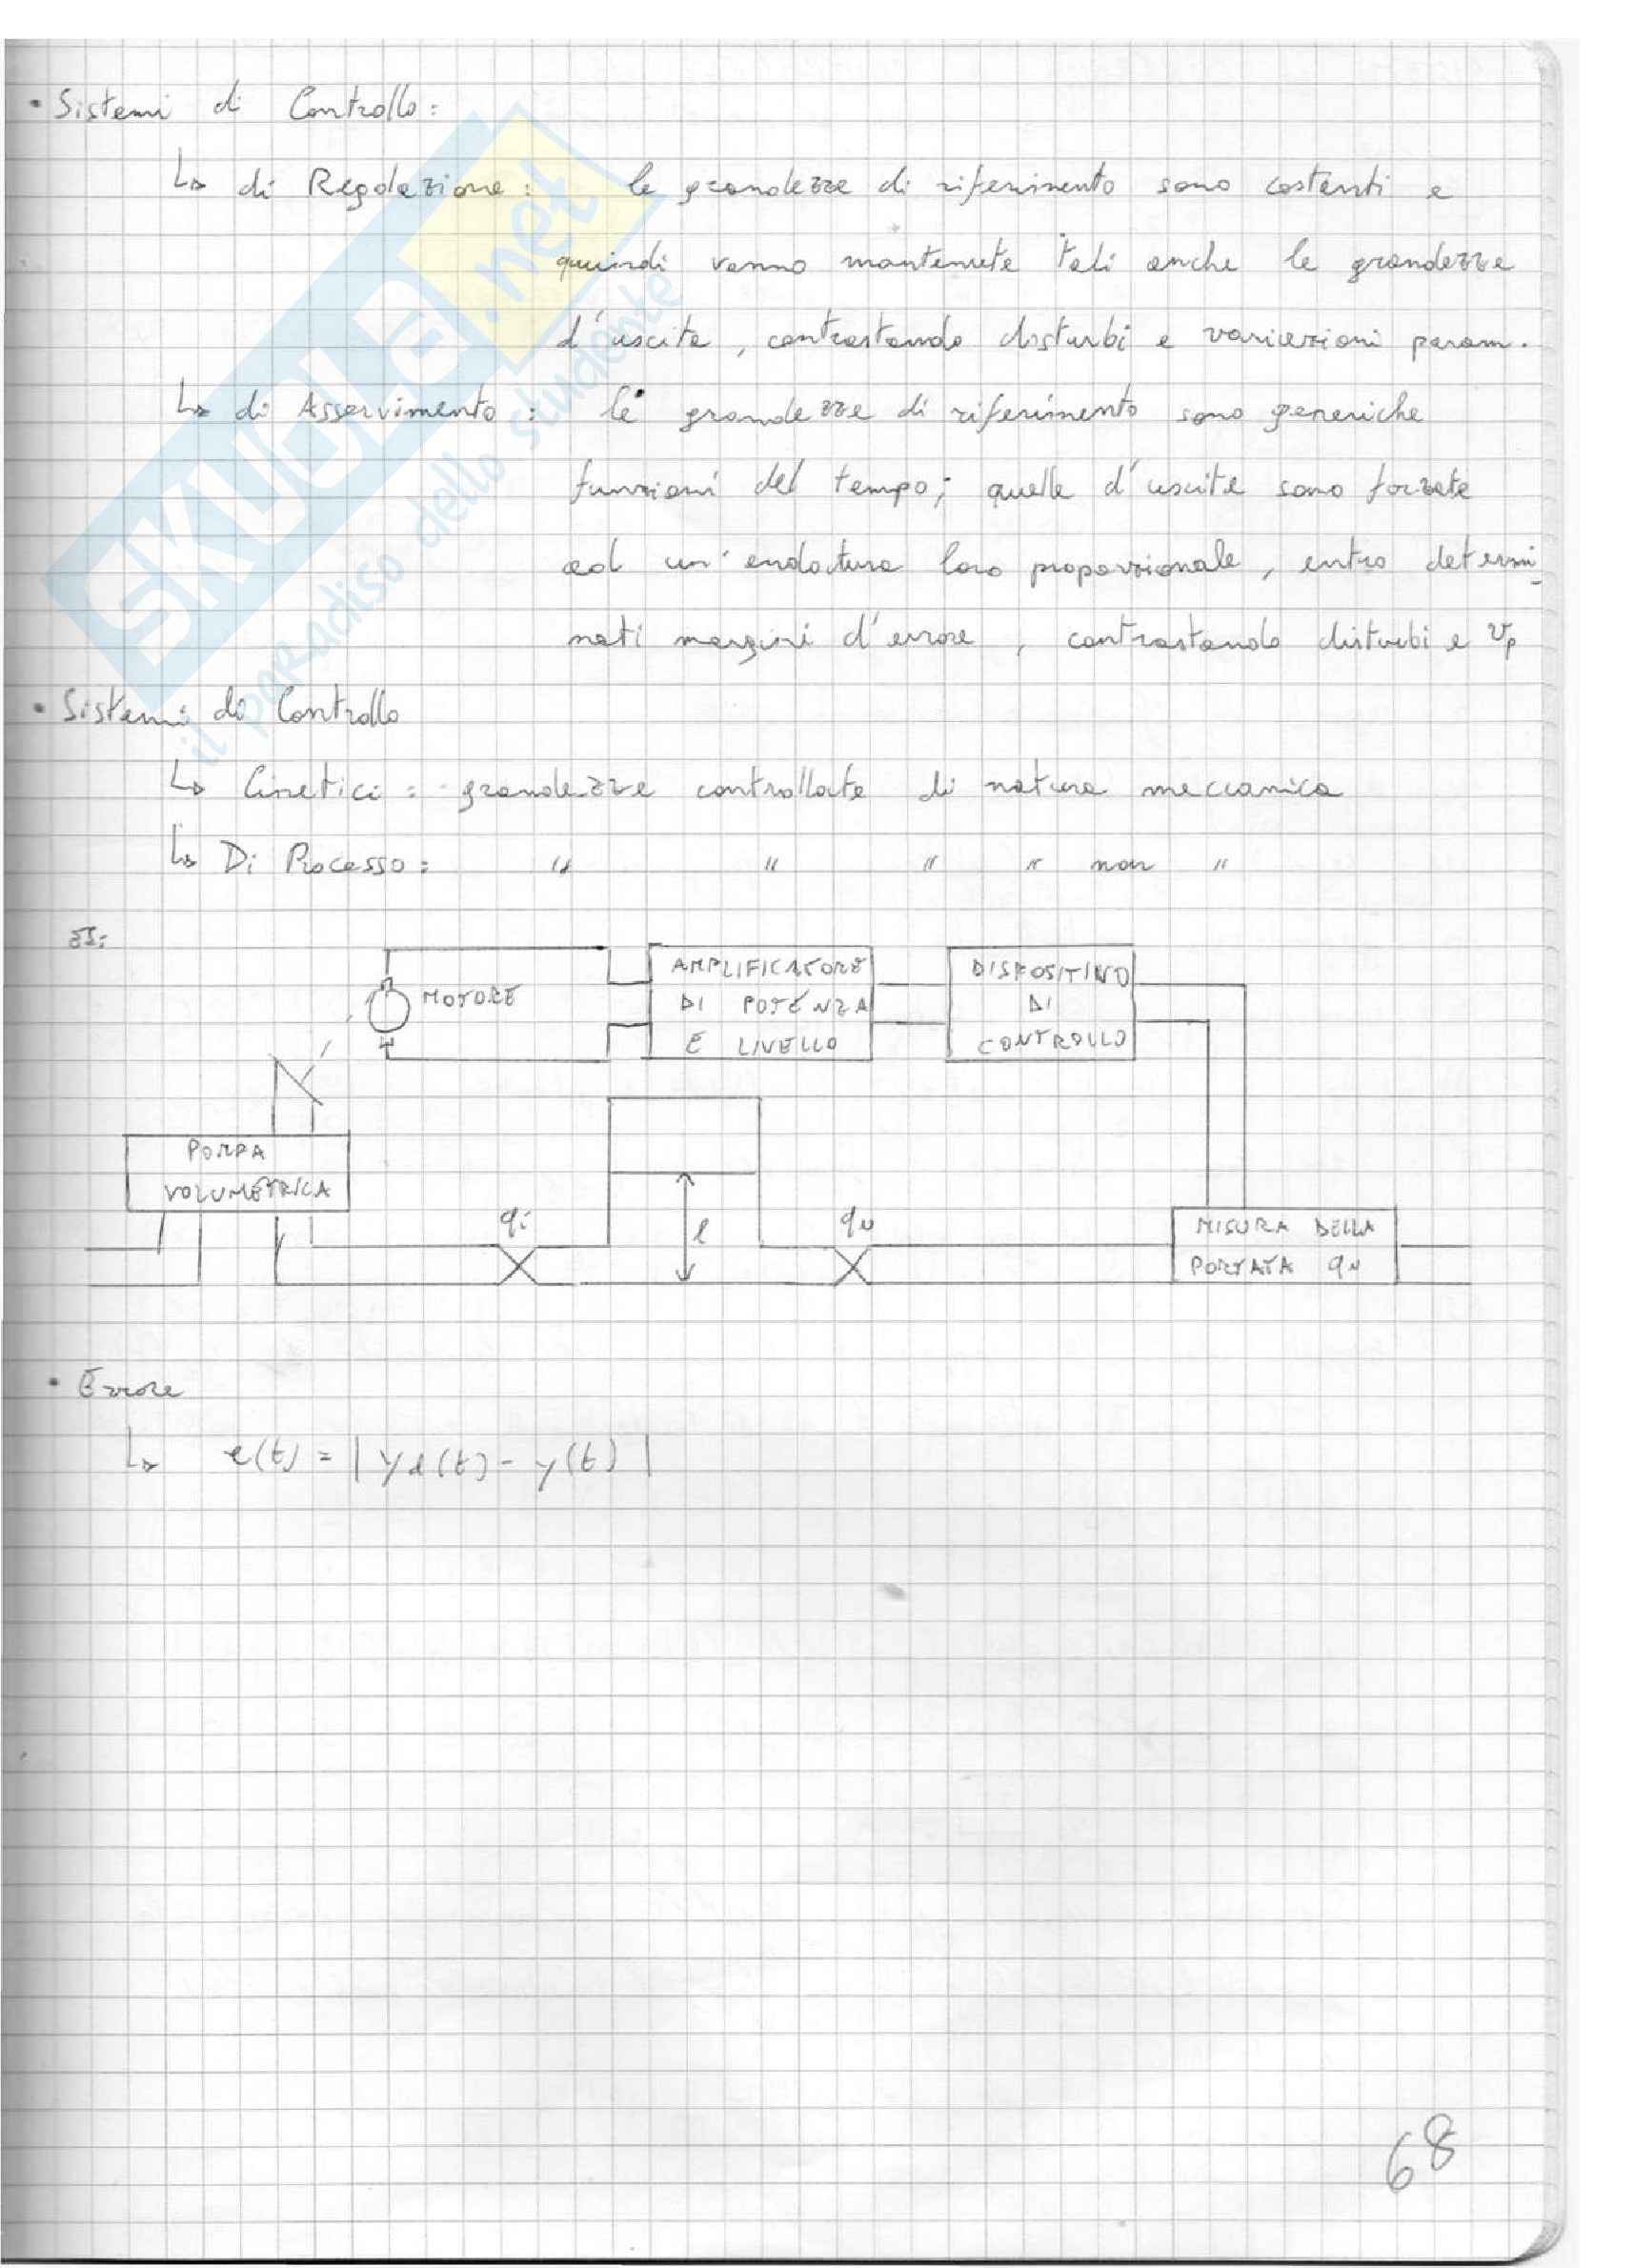 • Sistemi di Controllo:
↳ di Regolazione: le grandezze di riferimento sono costanti e
quindi vanno mantenute tali anche le grandezze
d'uscita, contrastando disturbi e variazioni param.
↳ di Asservimento: le grandezze di riferimento sono generiche
funzioni del tempo; quelle d'uscita sono forzate
ad un'andatura loro proporzionale, entro determi-
nati margini d'errore, contrastando disturbi e vp
• Sistemi di Controllo
↳ Cinetici: grandezze controllate di natura meccanica
↳ Di Processo: " " " " non "
ES:
MOTORE
AMPLIFICATORE
DI POTENZA
E LIVELLO
DISPOSITIVO
DI
CONTROLLO
POMPA
VOLUMETRICA
qi
l
qu
MISURA DELLA
PORTATA qu
• Errore
↳ e(t) = | yd(t) - y(t) |
68
SKUOLA.net
il paradiso dello studente